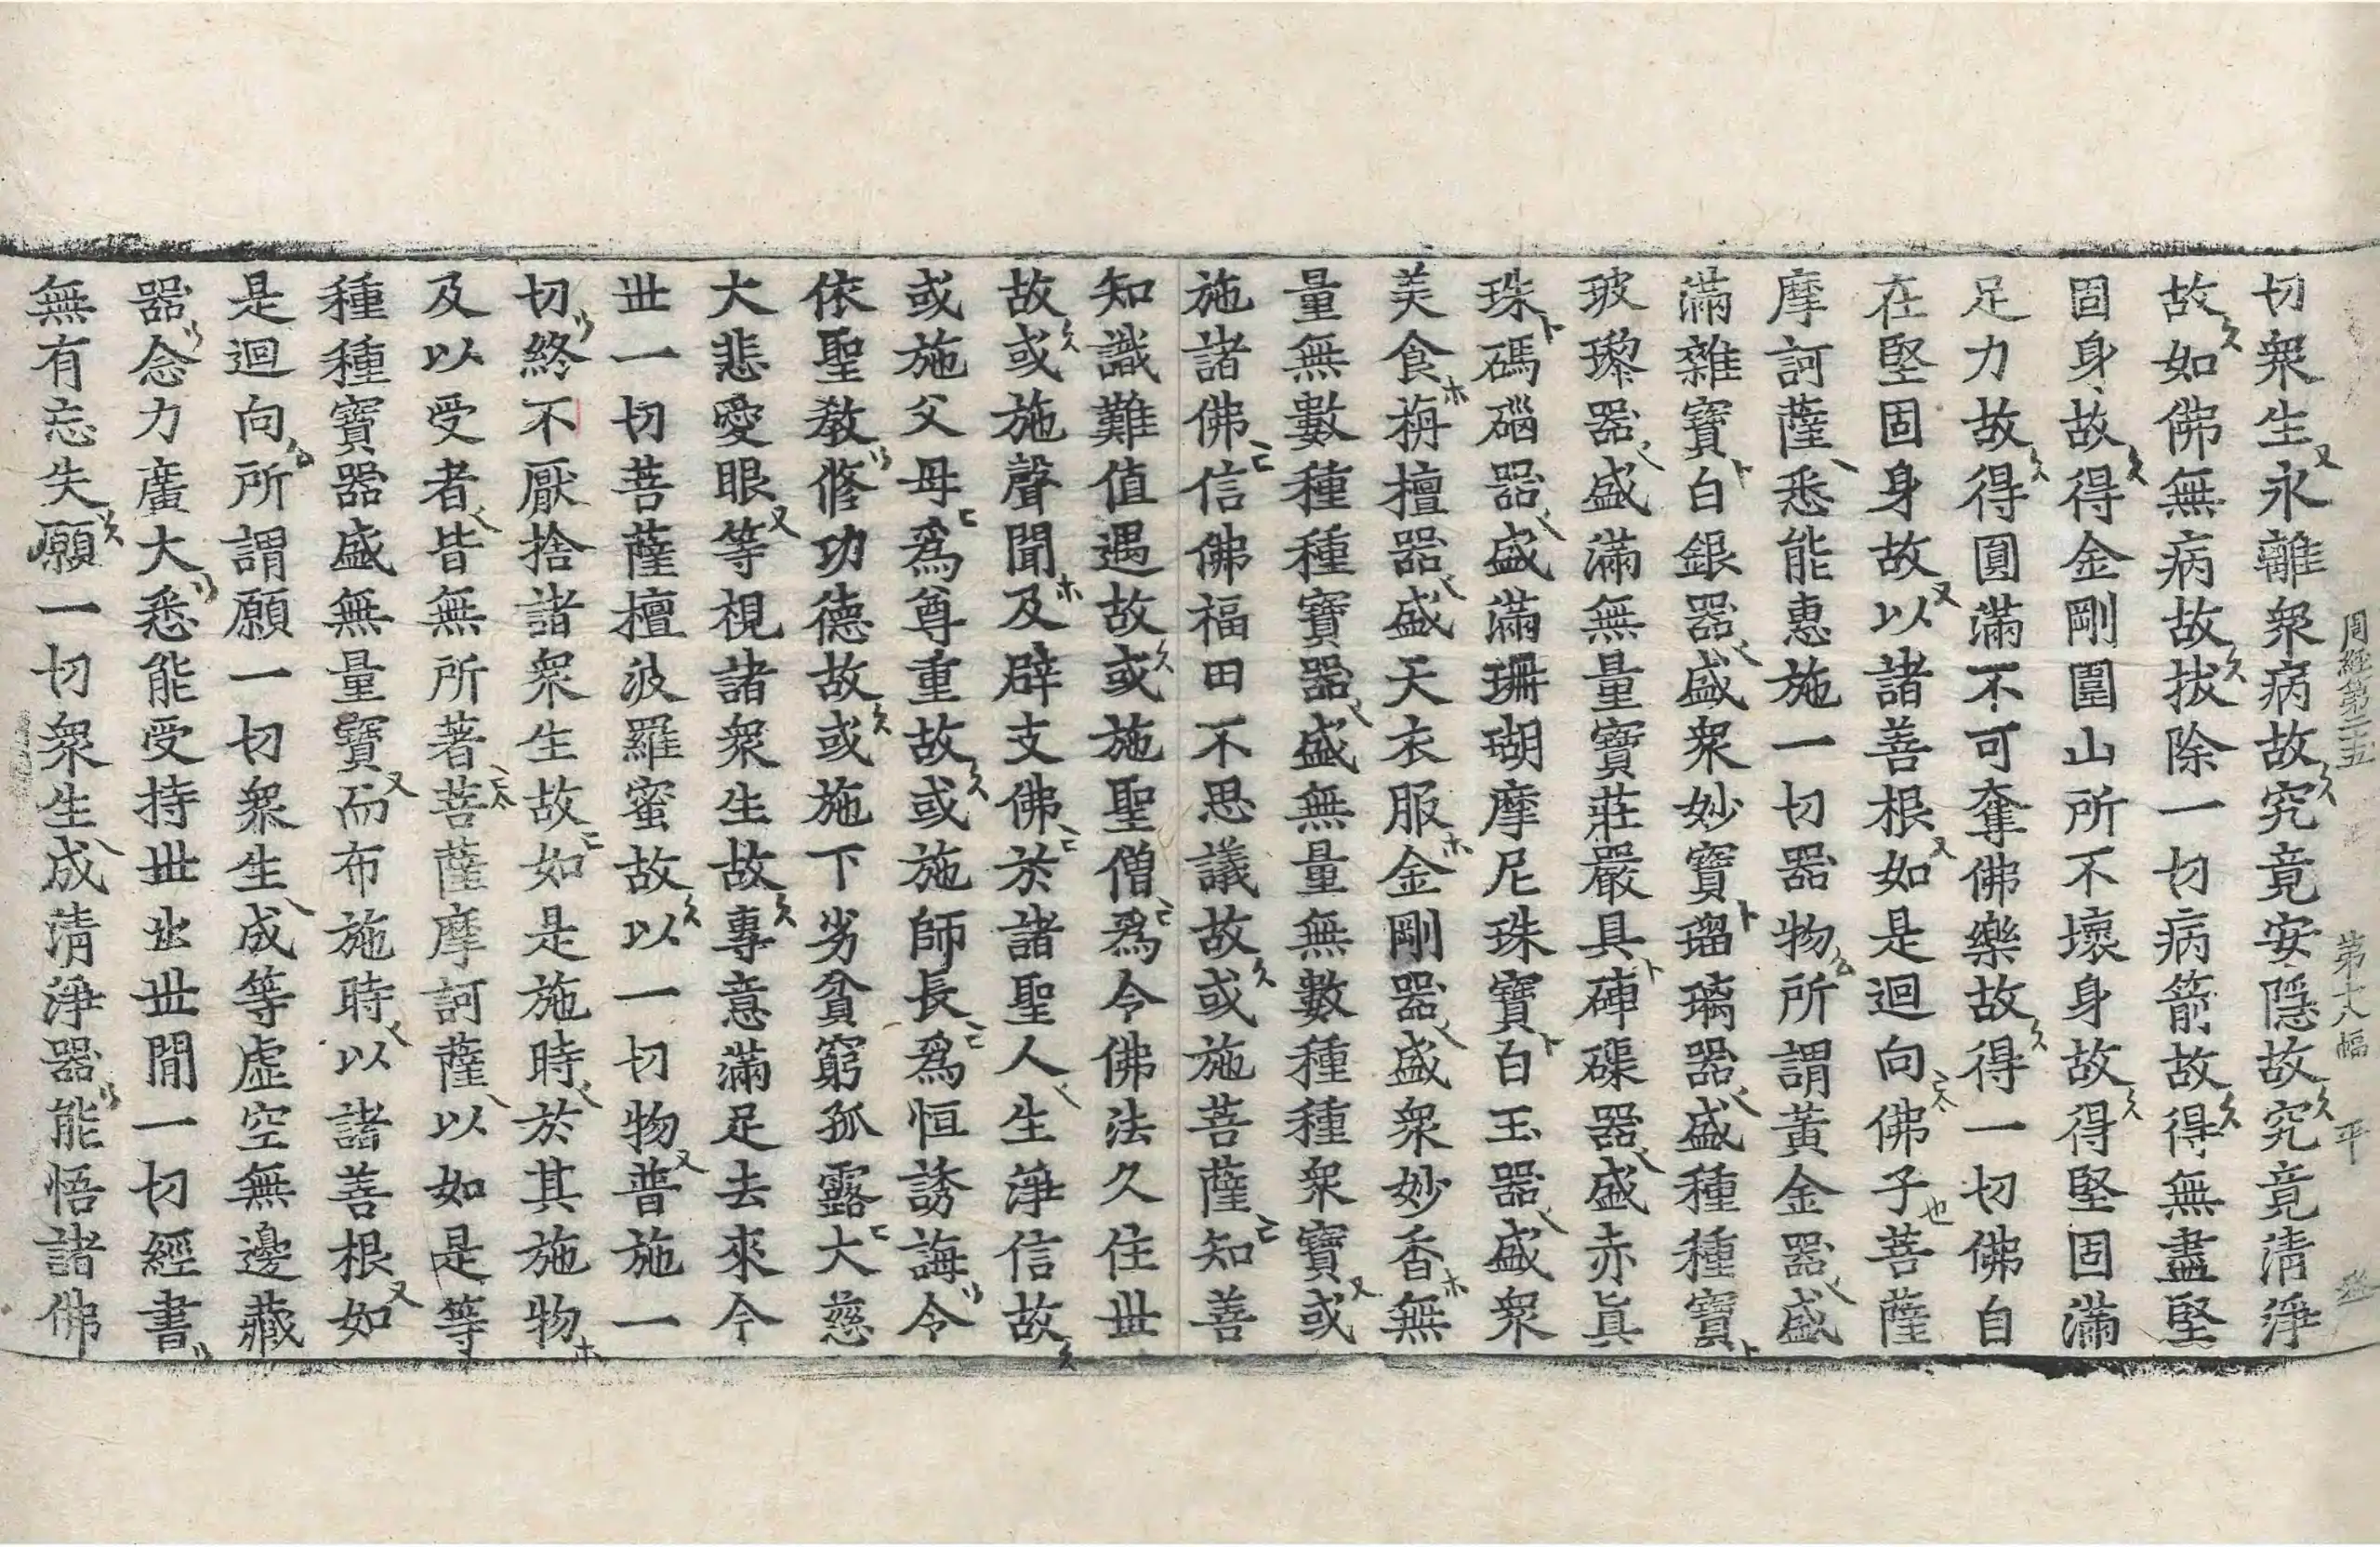 周經第二五 第十八幅 平
切衆生永離衆病故究竟安隱故究竟清淨
故如佛無病故拔除一切病箭故得無盡堅
固身故得金剛圍山所不壞身故得堅固滿
足力故得圓滿不可奪佛樂故得一切佛自
在堅固身故以諸善根如是迴向佛子菩薩
摩訶薩悉能惠施一切器物所謂黃金器盛
滿雜寶白銀器盛衆妙寶瑠璃器盛種種寶
玻瓈器盛滿無量寶莊嚴具硨磲器盛赤眞
珠碼碯器盛滿珊瑚摩尼珠寶白玉器盛衆
美食栴檀器盛天衣服金剛器盛衆妙香無
量無數種種寶器盛無量無數種種衆寶或
施諸佛信佛福田不思議故或施菩薩知善
知識難值遇故或施聖僧爲令佛法久住世
故或施聲聞及辟支佛於諸聖人生淨信故
或施父母爲尊重故或施師長爲恒誘誨令
依聖教修功德故或施下劣貧窮孤露大慈
大悲愛眼等視諸衆生故專意滿足去來今
世一切菩薩檀波羅蜜故以一切物普施一
切終不厭捨諸衆生故如是施時於其施物
及以受者皆無所著菩薩摩訶薩以如是等
種種寶器盛無量寶而布施時以諸善根如
是迴向所謂願一切衆生成等虛空無邊藏
器念力廣大悉能受持世出世間一切經書
無有忘失願一切衆生成清淨器能悟諸佛